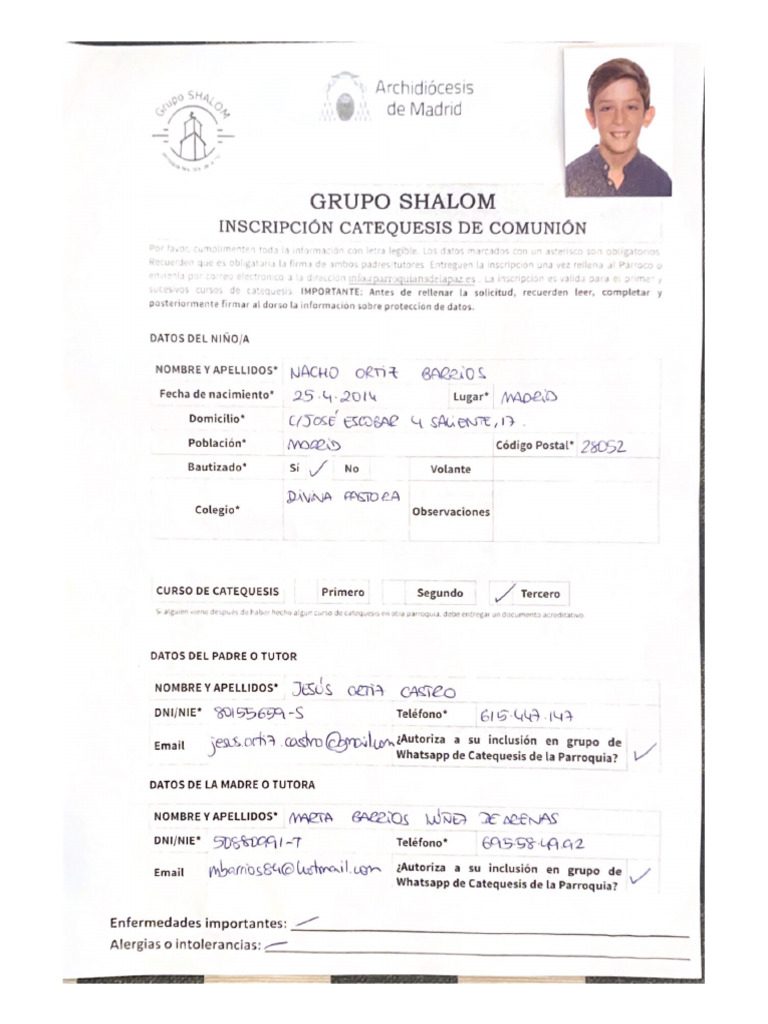 Grupo SHALOM
Archidiócesis
de Madrid
GRUPO SHALOM
INSCRIPCIÓN CATEQUESIS DE COMUNIÓN
Por favor, cumplimenten toda la información con letra legible. Los datos marcados con un asterisco son obligatorios.
Recuerden que es obligatoria la firma de ambos padres/tutores. Entreguen la inscripción una vez rellena al Párroco o
envíenla por correo electrónico a la dirección info@parroquiansdelapaz.es . La inscripción es válida para el primer y
sucesivos cursos de catequesis. IMPORTANTE: Antes de rellenar la solicitud, recuerden leer, completar y
posteriormente firmar al dorso la información sobre protección de datos.
DATOS DEL NIÑO/A
NOMBRE Y APELLIDOS* NACHO ORTIZ BARRIOS
Fecha de nacimiento* 25.4.2014 Lugar* MADRID
Domicilio* C/JOSÉ ESCOBAR 4 SALIENTE, 17.
Población* MADRID Código Postal* 28052
Bautizado* Sí ✓ No Volante
Colegio* DIVINA PASTORA Observaciones
CURSO DE CATEQUESIS Primero Segundo ✓ Tercero
Si alguien viene después de haber hecho algún curso de catequesis en otra parroquia, debe entregar un documento acreditativo.
DATOS DEL PADRE O TUTOR
NOMBRE Y APELLIDOS* JESÚS ORTIZ CASTRO
DNI/NIE* 80155659-S Teléfono* 615.447.147
Email jesus.ortiz.castro@gmail.com ¿Autoriza a su inclusión en grupo de
Whatsapp de Catequesis de la Parroquia? ✓
DATOS DE LA MADRE O TUTORA
NOMBRE Y APELLIDOS* MARTA BARRIOS NÚÑEZ DE ARENAS
DNI/NIE* 50880991-T Teléfono* 695.58.49.92
Email mbarrios84@hotmail.com ¿Autoriza a su inclusión en grupo de
Whatsapp de Catequesis de la Parroquia? ✓
Enfermedades importantes: —
Alergias o intolerancias: —